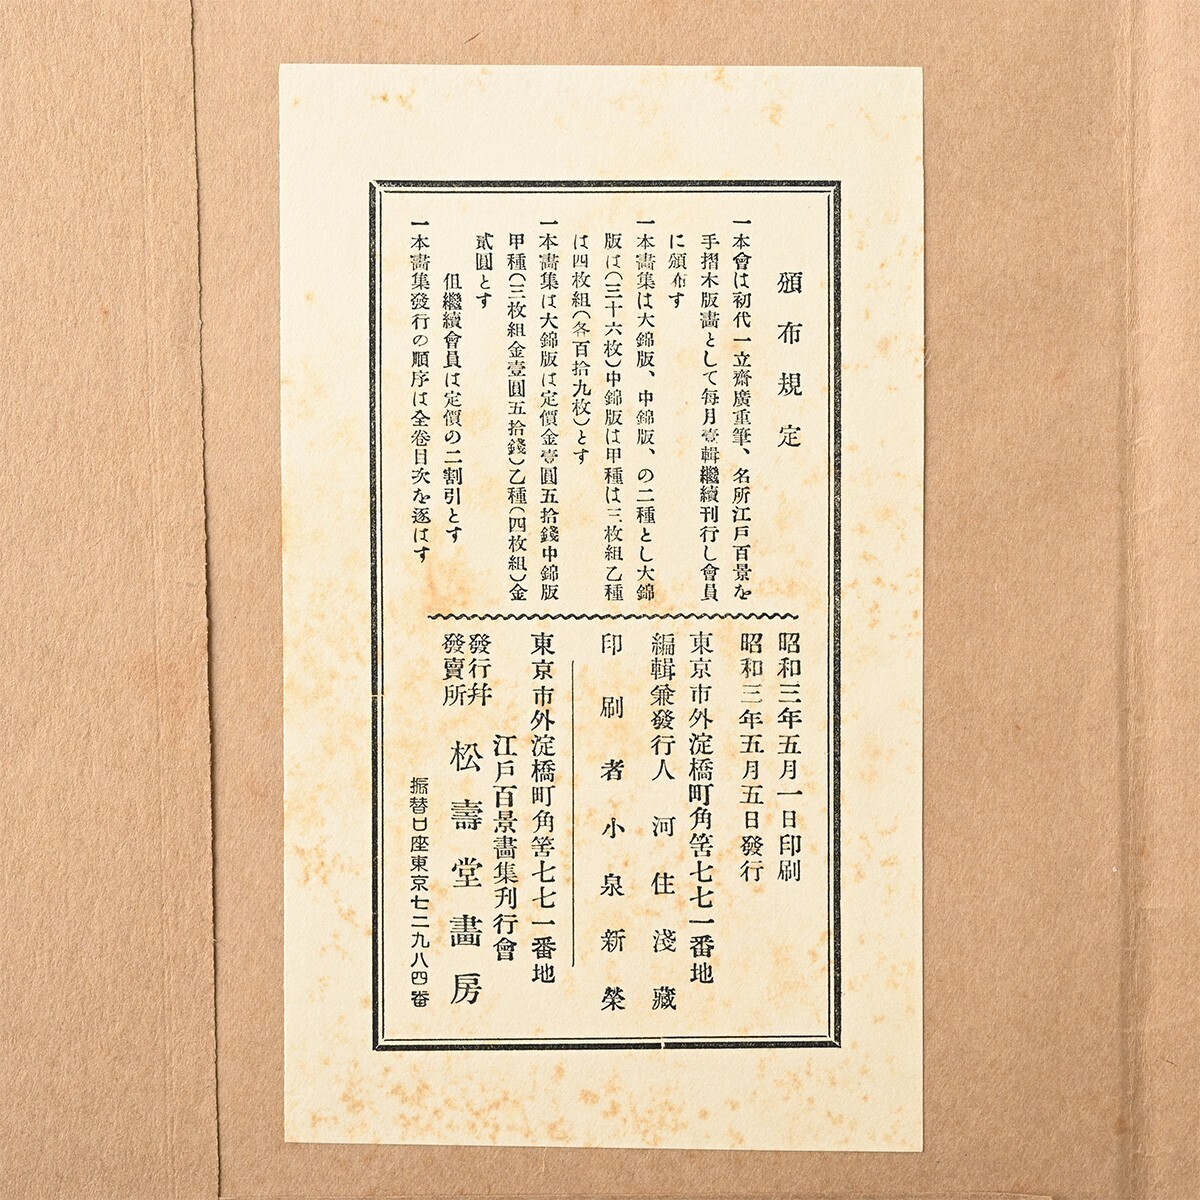 頒布規定
一本會は初代一立齋廣重筆、名所江戸百景を
手摺木版畫として每月壹輯繼續刊行し會員
に頒布す
一本畵集は大錦版、中錦版、の二種とし大錦
版は(三十六枚)中錦版は甲種は三枚組乙種
は四枚組(各百拾九枚)とす
一本畵集は大錦版は定價金壹圓五拾錢中錦版
甲種(三枚組金壹圓五拾錢)乙種(四枚組)金
貳圓とす
但繼續會員は定價の二割引とす
一本畵集發行の順序は全卷目次を逐はす
昭和三年五月一日印刷
昭和三年五月五日發行
東京市外淀橋町角筈七七一番地
編輯兼發行人 河住淺藏
印刷者 小泉新榮
東京市外淀橋町角筈七七一番地
江戸百景畵集刊行會
發行幷
發賣所 松壽堂畵房
振替口座東京七二九八四番